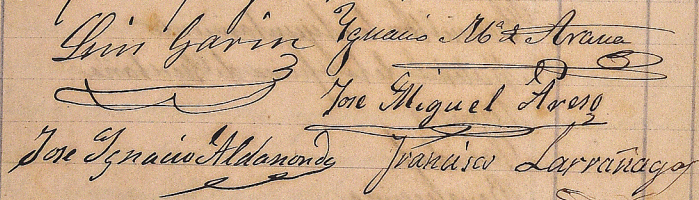 Luis Garin
Ignacio Mª d Arana
Jose Miguel Areso
Jose Ignacio Aldanondo
Francisco Larrañaga